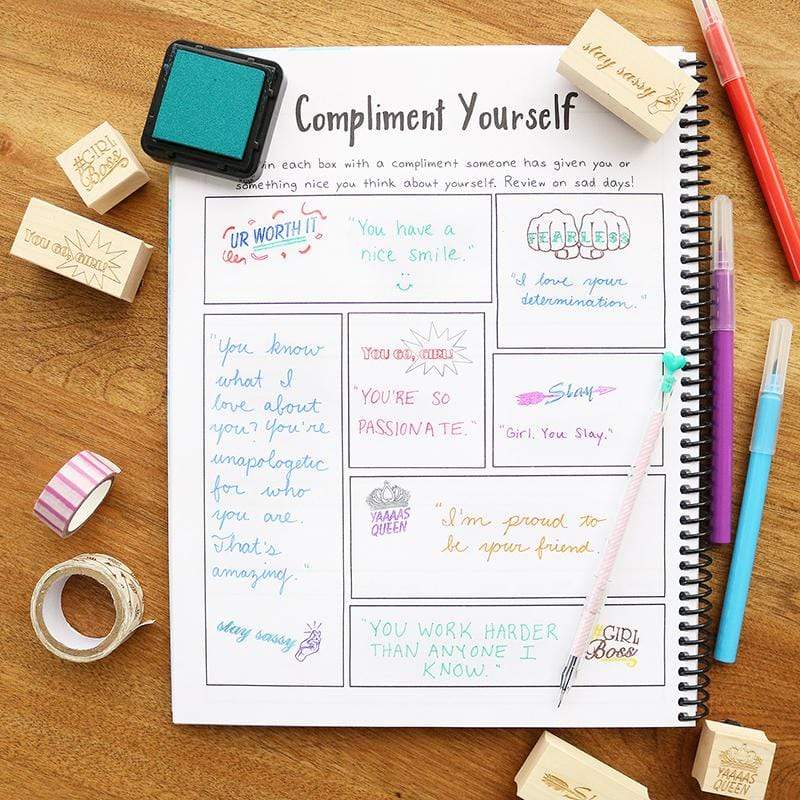 Compliment Yourself
in each box with a compliment someone has given you or
something nice you think about yourself. Review on sad days!
UR WORTH IT
"You have a
nice smile."
FEARLESS
"I love your
determination."
"You know
what I
love about
you? You're
unapologetic
for who
you are.
That's
amazing."
stay sassy
YOU GO, GIRL!
"YOU'RE SO
PASSIONATE."
Slay
"Girl. You Slay."
YAAAAS
QUEEN
"I'm proud to
be your friend.
"YOU WORK HARDER
THAN ANYONE I
KNOW."
#GIRL
Boss
stay sassy
#GIRL
Boss
YOU GO, GIRL!
YAAAAS
QUEEN